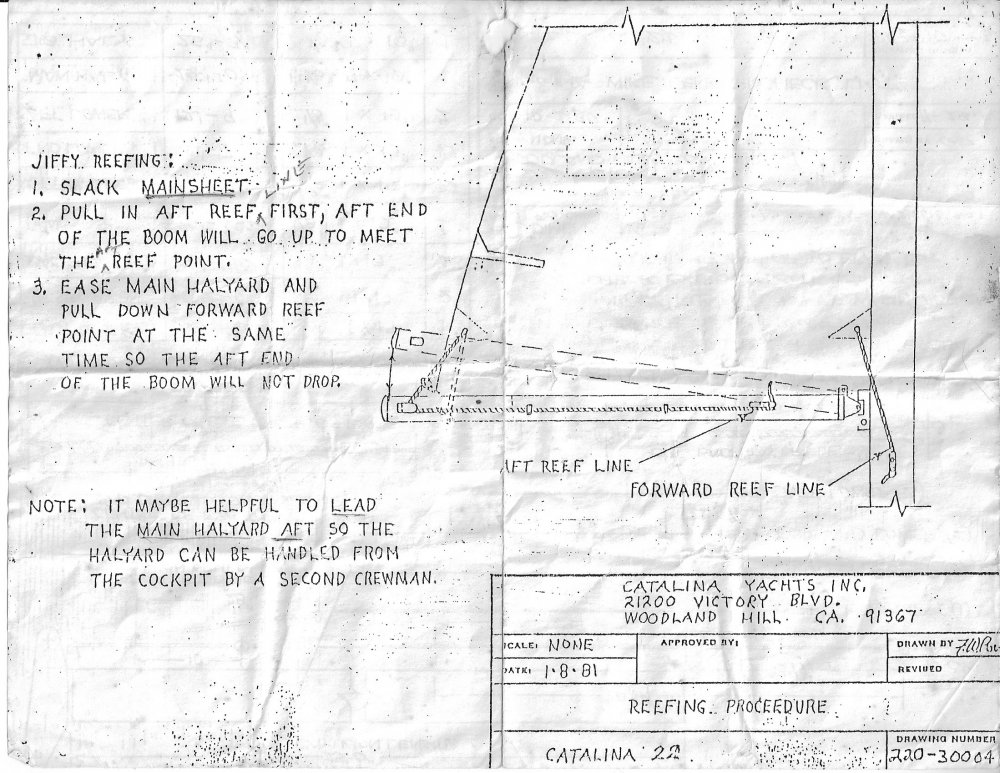 JIFFY REEFING:
1. SLACK MAINSHEET.
LINE
2. PULL IN AFT REEF, FIRST, AFT END
OF THE BOOM WILL GO UP TO MEET
AFT
THE REEF POINT.
3. EASE MAIN HALYARD AND
PULL DOWN FORWARD REEF
POINT AT THE SAME
TIME SO THE AFT END
OF THE BOOM WILL NOT DROP.
AFT REEF LINE
FORWARD REEF LINE
NOTE: IT MAYBE HELPFUL TO LEAD
THE MAIN HALYARD AFT SO THE
HALYARD CAN BE HANDLED FROM
THE COCKPIT BY A SECOND CREWMAN.
CATALINA YACHTS INC.
21200 VICTORY BLVD.
WOODLAND HILL. CA. 91367
SCALE: NONE
APPROVED BY:
DRAWN BY
DATE: 1·8·81
REVISED
REEFING PROCEEDURE
CATALINA 22
DRAWING NUMBER
220-30004